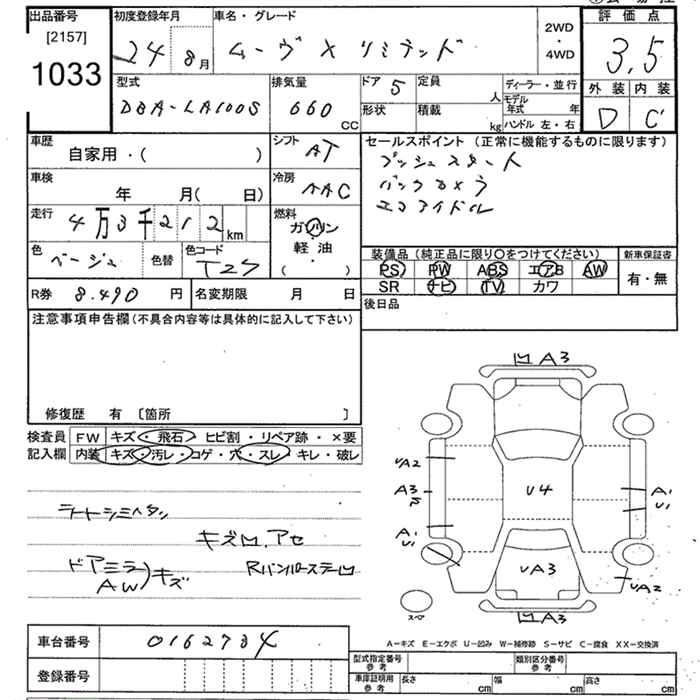 出品番号
[2157]
1033
初度登録年月
24 8月
車名・グレード
ムーヴ X リミテッド
2WD
・
4WD
評価点
3.5
型式
DBA-LA100S
排気量
660 CC
ドア 5
形状
定員 人
積載 kg
ディーラー・並行
モデル年式 年
ハンドル 左・右
外装 内装
D C
車歴
自家用・( )
シフト
AT
車検
年 月( 日)
冷房
AAC
走行
4万3千212km
燃料
ガソリン
・
軽油
( )
色
ベージュ
色替
色コード
T27
R券 8.490 円
名変期限 月 日
セールスポイント(正常に機能するものに限ります)
プッシュスタート
バックカメラ
エコアイドル
装備品(純正品に限り○をつけてください)
PS PW ABS エアB AW
SR ナビ TV カワ
新車保証書
有・無
後日品
注意事項申告欄(不具合内容等は具体的に記入して下さい)
修復歴 有 〔箇所 〕
検査員記入欄
FW キズ・飛石・ヒビ割・リペア跡・×要
内装 キズ・汚レ・コゲ・穴・スレ・キレ・破レ
シートシミヘタリ
キズ凹.アセ
ドアミラ
AW)キズ
Rバンパーステー凹
凹A3
UA2
A3
A1
U1
U4
A1
U1
UA3
UA2
凹A3
スペア
A-キズ E-エクボ U-凹み W-補修跡 S-サビ C-腐食 XX-交換済
車台番号 0162734
登録番号
型式指定番号 参考
類別区分番号 参考
車庫証明用 参考
長さ cm 幅 cm 高さ cm